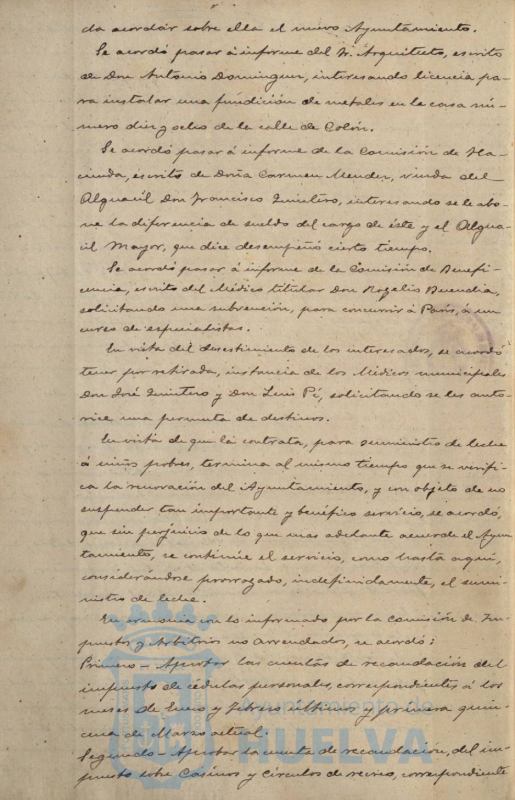 da acordar sobre ella el nuevo Ayuntamiento.
Se acordó pasar á informe del Sr. Arquitecto, escrito
de Don Antonio Dominguez, interesando licencia pa-
ra instalar una fundición de metales en la casa nú-
mero diez y ocho de la calle de Colón.
Se acordó pasar á informe de la Comisión de Ha-
cienda, escrito de Doña Carmen Mendez, viuda del
Alguacil Don Francisco Quintero, interesando se le abo-
ne la diferencia de sueldo del cargo de éste y el Algua-
cil Mayor, que dice desempeñó cierto tiempo.
Se acordó pasar á informe de la Comisión de Benefi-
cencia, escrito del Médico titular Don Rogelio Buendia,
solicitando una subvención, para concurrir á Paris, á un
curso de especialistas.
En vista del desestimiento de los interesados, se acordó
tener por retirada, instancia de los Médicos municipales
Don José Quintero y Don Luis Pí, solicitando se les auto-
rice una permuta de destinos.
En vista de que la contrata, para suministro de leche
á niños pobres, termina al mismo tiempo que se verifi-
ca la renovación del Ayuntamiento, y con objeto de no
suspender tan importante y benéfico servicio, se acordó,
que sin perjuicio de lo que mas adelante acuerde el Ayun-
tamiento, se continúe el servicio, como hasta aquí,
considerándose prorrogado, indefinidamente, el sumi-
nistro de leche.
En armonia con lo informado por la Comisión de Im-
puestos y Arbitrios no Arrendados, se acordó:
Primero - Aprobar las cuentas de recaudación del
impuesto de cédulas personales, correspondientes á los
meses de Enero y Febrero últimos y primera quin-
cena de Marzo actual.
Segundo - Aprobar la cuenta de recaudación, del im-
puesto sobre Casinos y Circulos de recreo, correspondiente
Ayuntamiento de
HUELVA